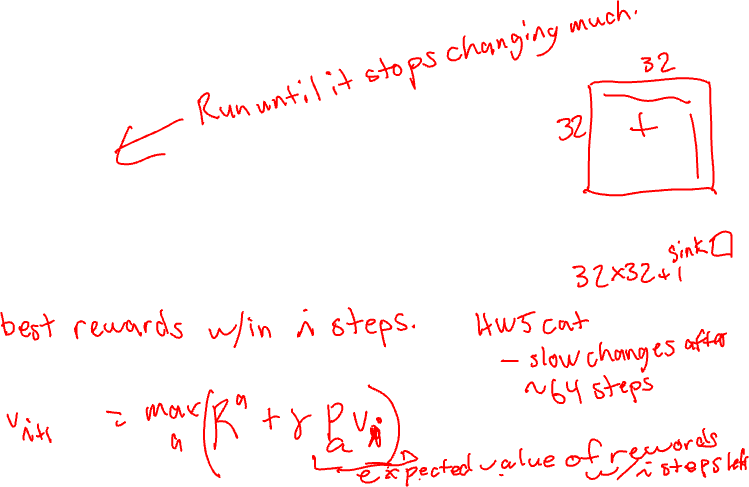 Run until it stops changing much.
32
32
+
32×32+1
sink
best rewards w/in i steps.
HW5 cat
- slow changes after
~64 steps
v_{i+1} = max_a (R^a + γ P_a v_i)
expected value of rewards
w/ i steps left